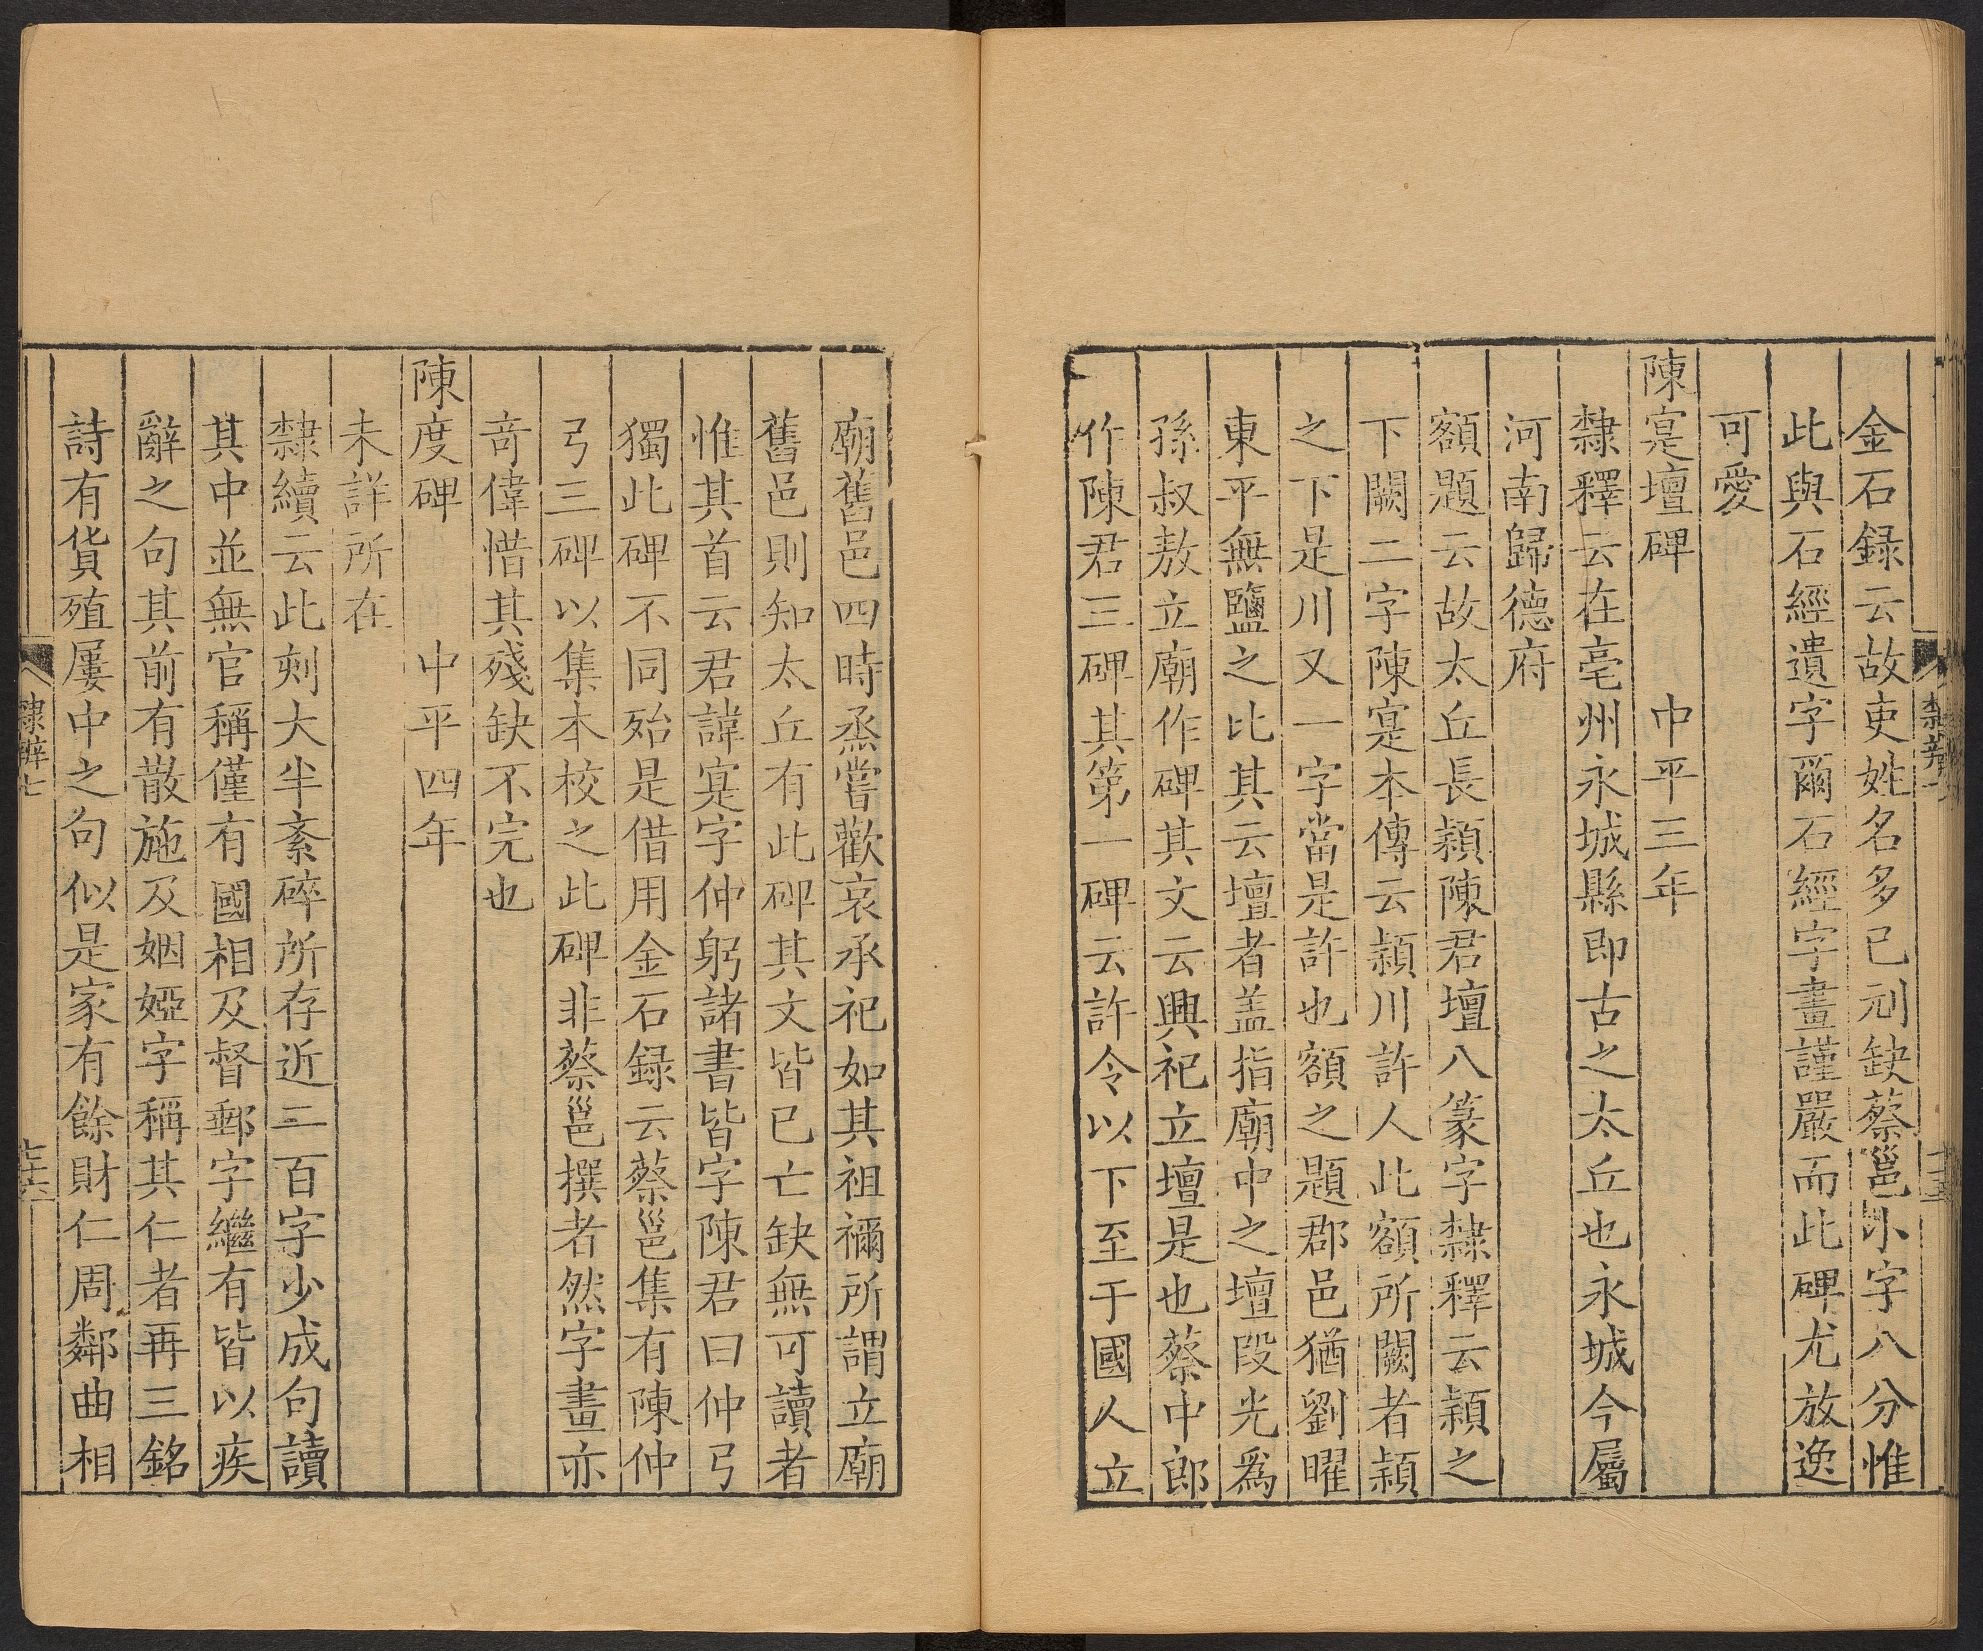 金石録云故吏姓名多已刓缺蔡邕小字八分惟
此與石經遺字爾石經字畫謹嚴而此碑尤放逸
可愛
陳寔壇碑　中平三年
隸釋云在亳州永城縣即古之太丘也永城今屬
河南歸德府
額題云故太丘長潁陳君壇八篆字隸釋云潁之
下闕二字陳寔本傳云潁川許人此額所闕者潁
之下是川又一字當是許也額之題郡邑猶劉曜
東平無鹽之比其云壇者盖指廟中之壇段光爲
孫叔敖立廟作碑其文云興祀立壇是也蔡中郎
作陳君三碑其第一碑云許令以下至于國人立
廟舊邑四時烝嘗歡哀承祀如其祖禰所謂立廟
舊邑則知太丘有此碑其文皆已亡缺無可讀者
惟其首云君諱寔字仲躬諸書皆字陳君曰仲弓
獨此碑不同殆是借用金石録云蔡邕集有陳仲
弓三碑以集本校之此碑非蔡邕撰者然字畫亦
竒偉惜其殘缺不完也
陳度碑　中平四年
未詳所在
隸續云此刻大半紊碎所存近三百字少成句讀
其中並無官稱僅有國相及督郵字繼有皆以疾
辭之句其前有散施及姻婭字稱其仁者再三銘
詩有貨殖屢中之句似是家有餘財仁周鄰曲相
隸辨七